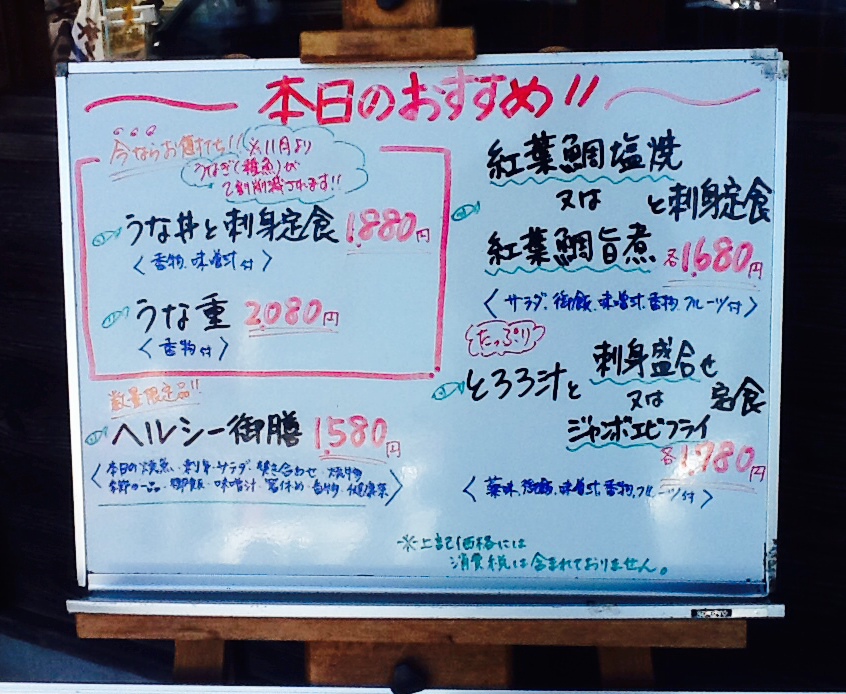 本日のおすすめ!!
今ならお値打ち!!
※11月より
うなぎ(稚魚)が
2割削減されます!!
うな丼と刺身定食 1,880円
〈香物、味噌汁付〉
うな重 2,080円
〈香物付〉
数量限定品!!
ヘルシー御膳 1,580円
〈本日の焼魚・刺身・サラダ・炊き合わせ・焼物
季節の一品・御飯・味噌汁・箸休め・香物・健康茶〉
紅葉鯛塩焼
又は と刺身定食
紅葉鯛旨煮 各1,680円
〈サラダ、御飯、味噌汁、香物、フルーツ付〉
たっぷり
刺身盛合せ
とろろ汁と 又は 定食
ジャンボエビフライ
各1,780円
〈薬味、御飯、味噌汁、香物、フルーツ付〉
※上記価格には
消費税は含まれておりません。